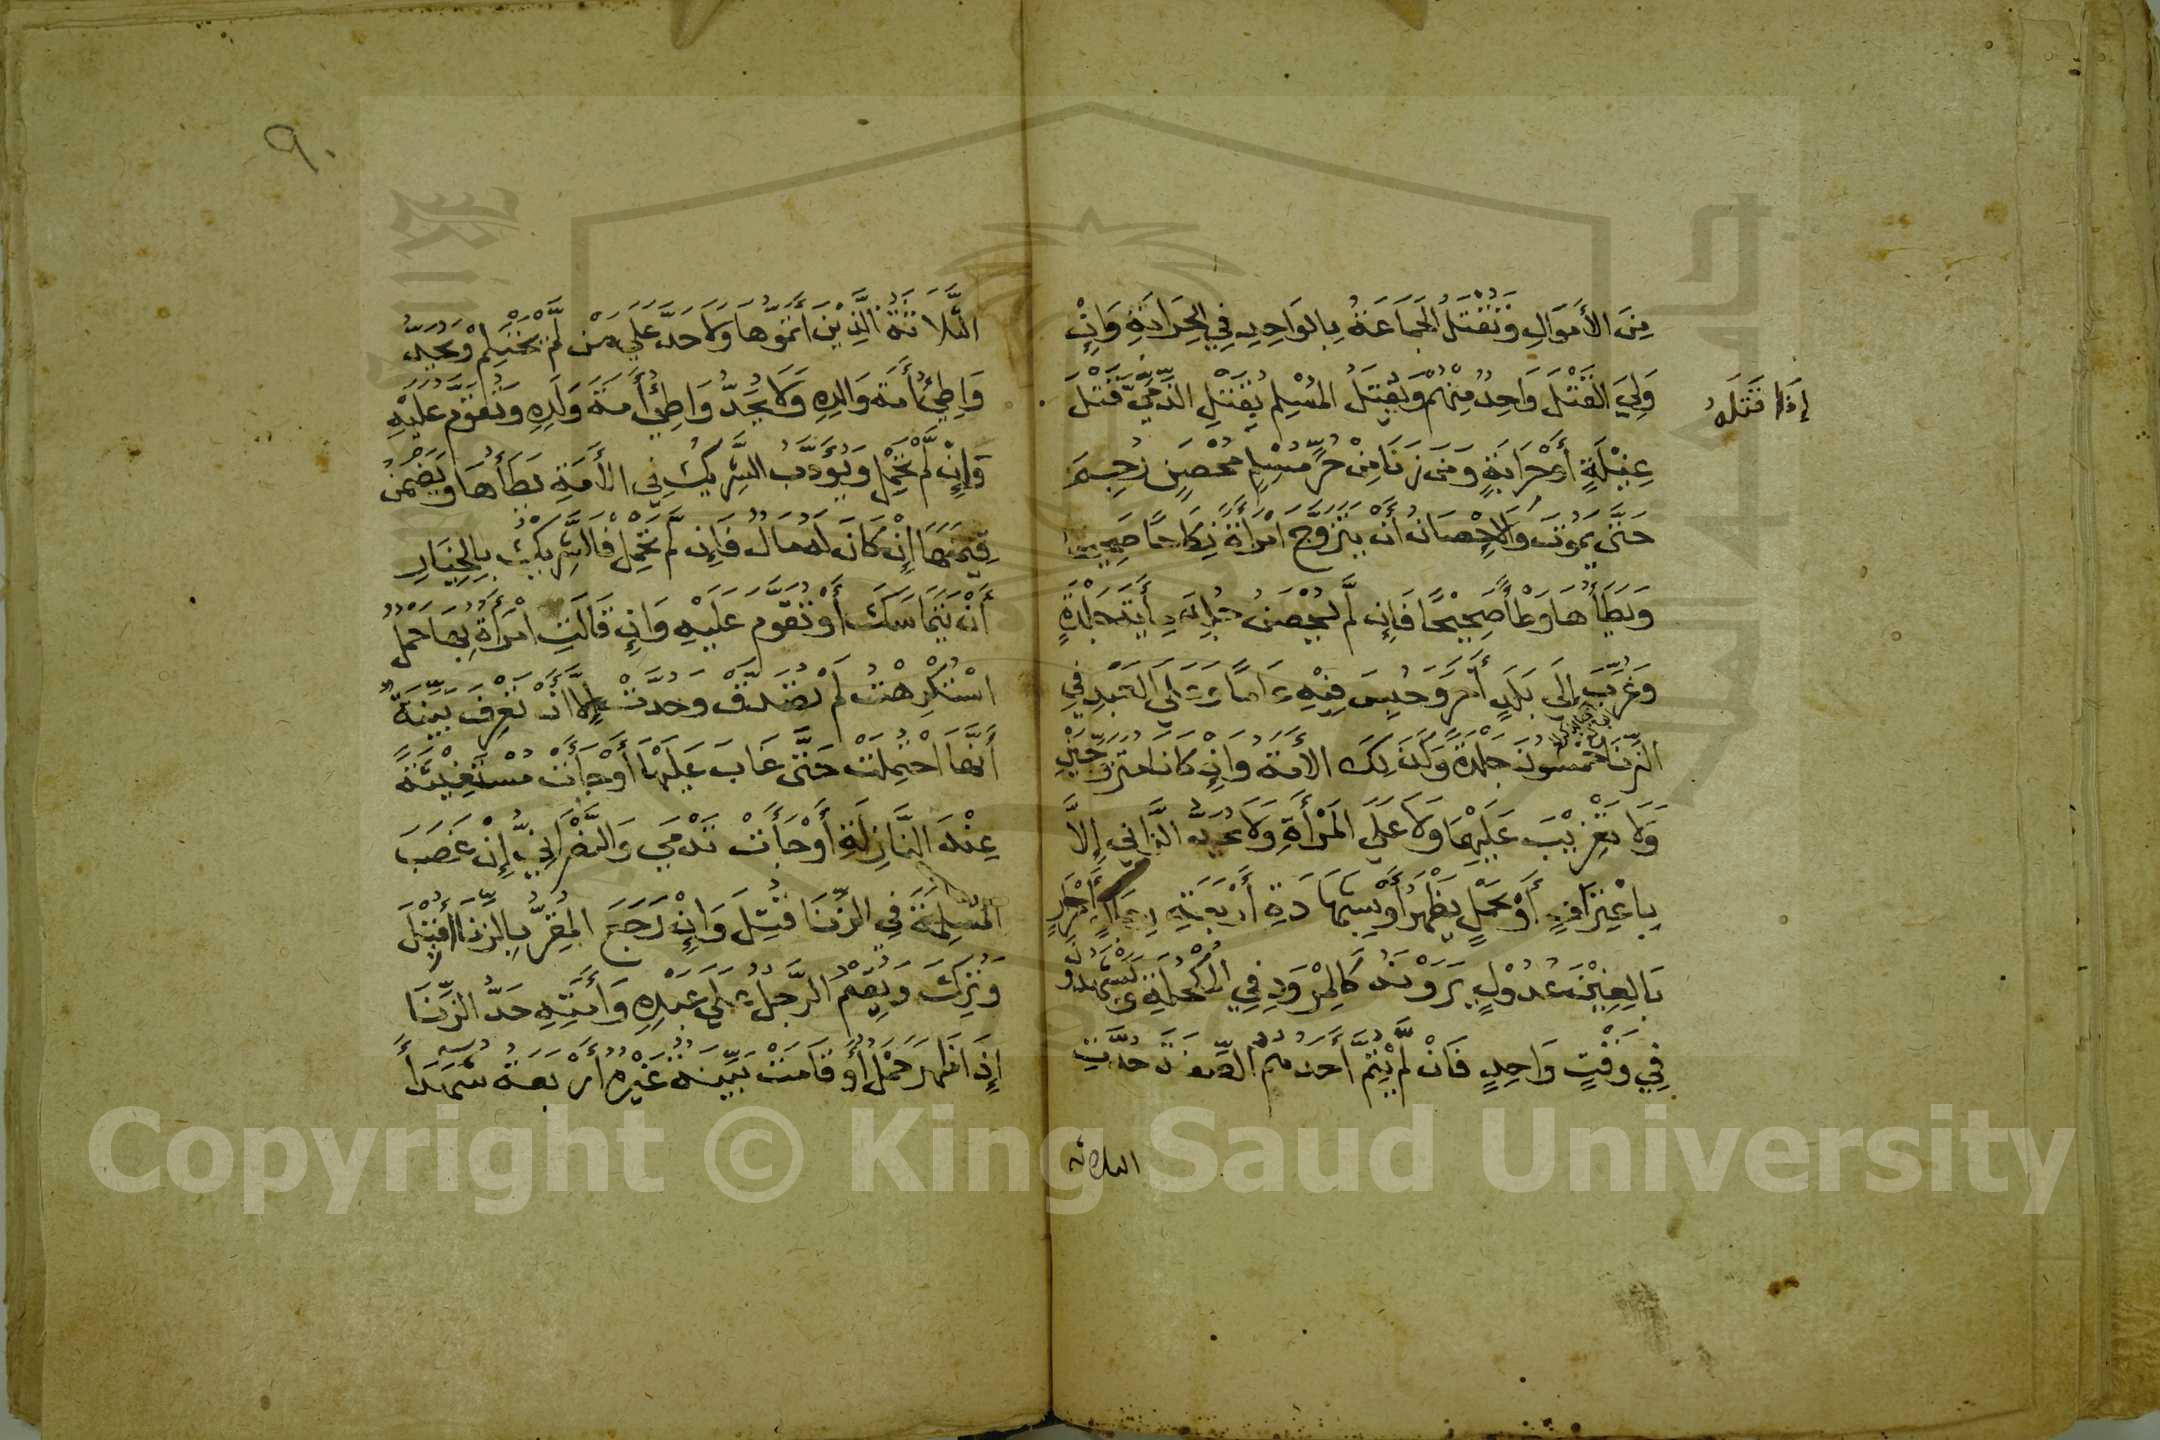 مِنَ الأَمْوَالِ وَتُقْتَلُ الجَمَاعَةُ بِالوَاحِدِ فِي الحِرَابَةِ وَإِنْ
وَلِيَ القَتْلَ وَاحِدٌ مِنْهُمْ وَيُقْتَلُ المُسْلِمُ بِقَتْلِ الذِّمِّيِّ قَتْلَ
إِذَا قَتَلَهُ
غِيْلَةٍ أَوْ حِرَابَةٍ وَمَنْ زَنَا مِنْ حُرٍّ مُسْلِمٍ مُحْصَنٍ رُجِمَ
حَتَّى يَمُوتَ وَالإِحْصَانُ أَنْ يَتَزَوَّجَ امْرَأَةً نِكَاحًا صَحِيحًا
وَيَطَأُهَا وَطْأً صَحِيْحًا فَإِن لَّمْ يُحْصَنْ جُلِدَ مِايَةَ جَلْدَةٍ
وَغُرِّبَ إِلَى بَلَدٍ أَخَرَ وَحُبِسَ فِيْهِ عَامًا وَعَلَى العَبْدِ فِي
الزِّنَا خَمْسُونَ جَلْدَةً وَكَذَلِكَ الأَمَةُ وَإِنْ كَانَا مُتَزَوِّجَيْنِ
وَلَا تَغْرِيْبَ عَلَيْهِمَا وَلَا عَلَى المَرْأَةِ وَلَا يُحَدُّ الزَّانِي إِلاَّ
بِاعْتِرَافٍ أَوْ بِحَمْلٍ يَظْهَرُ أَوْ بِشَهَادَةِ أَرْبَعَةِ رِجَالٍ أَحْرَارٍ
بَالِغِيْنَ عُدُوْلٍ يَرَوْنَهُ كَالمِرْوَدِ فِي المُكْحُلَةِ وَيَشْهَدُونَ
فِي وَقْتٍ وَاحِدٍ فَانْ لَّمْ يُتِمَّ أَحَدُهُمْ الصِّفَةَ حُدَّتِ
الثلاثة
٩٠
الثَّلَاثَةُ الَّذِيْنَ أَتَمُّوهَا وَلَا حَدَّ عَلَى مَنْ لَّمْ يَحْتَلِمْ وَيُحَدُّ
وَاطِئُ أَمَةِ وَالِدِهِ وَلَا يُحَدُّ وَاطِئُ أَمَةِ وَلَدِهِ وَتُقَوَّمُ عَلَيْهِ
وَإِنْ لَّمْ تَحْمِلْ وَيُؤَدَّبُ الشَّرِيْكُ فِي الأَمَةِ يَطَأُهَا وَيَضْمَنُ
قِيْمَتَهَا إِنْ كَانَ لَهُ مَالٌ فَإِن لَّمْ تَحْمِلْ فَالشَّرِيْكُ بِالخِيَارِ
أَنْ يَتَمَاسَكَ أَوْ تُقَوَّمَ عَلَيْهِ وَإِنْ قَالَتِ امْرَأَةٌ بِهَا حَمْلٌ
اسْتُكْرِهْتُ لَمْ تُصَدَّقْ وَحُدَّتْ إِلاَّ أَنْ تَعْرِفَ بَيِّنَةٌ
أَنَّهَا احْتُمِلَتْ حَتَّى غَابَ عَلَيْهَا أَوْ جَأَتْ مُسْتَغِيْثَةً
عِنْدَ النَّازِلَةِ أَوْ جَأَتْ تَدْمِي وَالنَّصْرَانِيُّ إِنْ غَصَبَ
المُسْلِمَةَ فِي الزِّنَا قُتِلَ وَإِنْ رَجَعَ المُقِرُّ بِالزِّنَا أُقِيْلَ
وَتُرِكَ وَيُقِيْمُ الرَّجُلُ عَلَى عَبْدِهِ وَأَمَتِهِ حَدَّ الزِّنَا
إِذَا ظَهَرَ حَمْلٌ أَوْ قَامَتْ بَيِّنَةٌ غَيْرُهُ أَرْبَعَةُ شُهَدَاءَ
Copyright © King Saud University